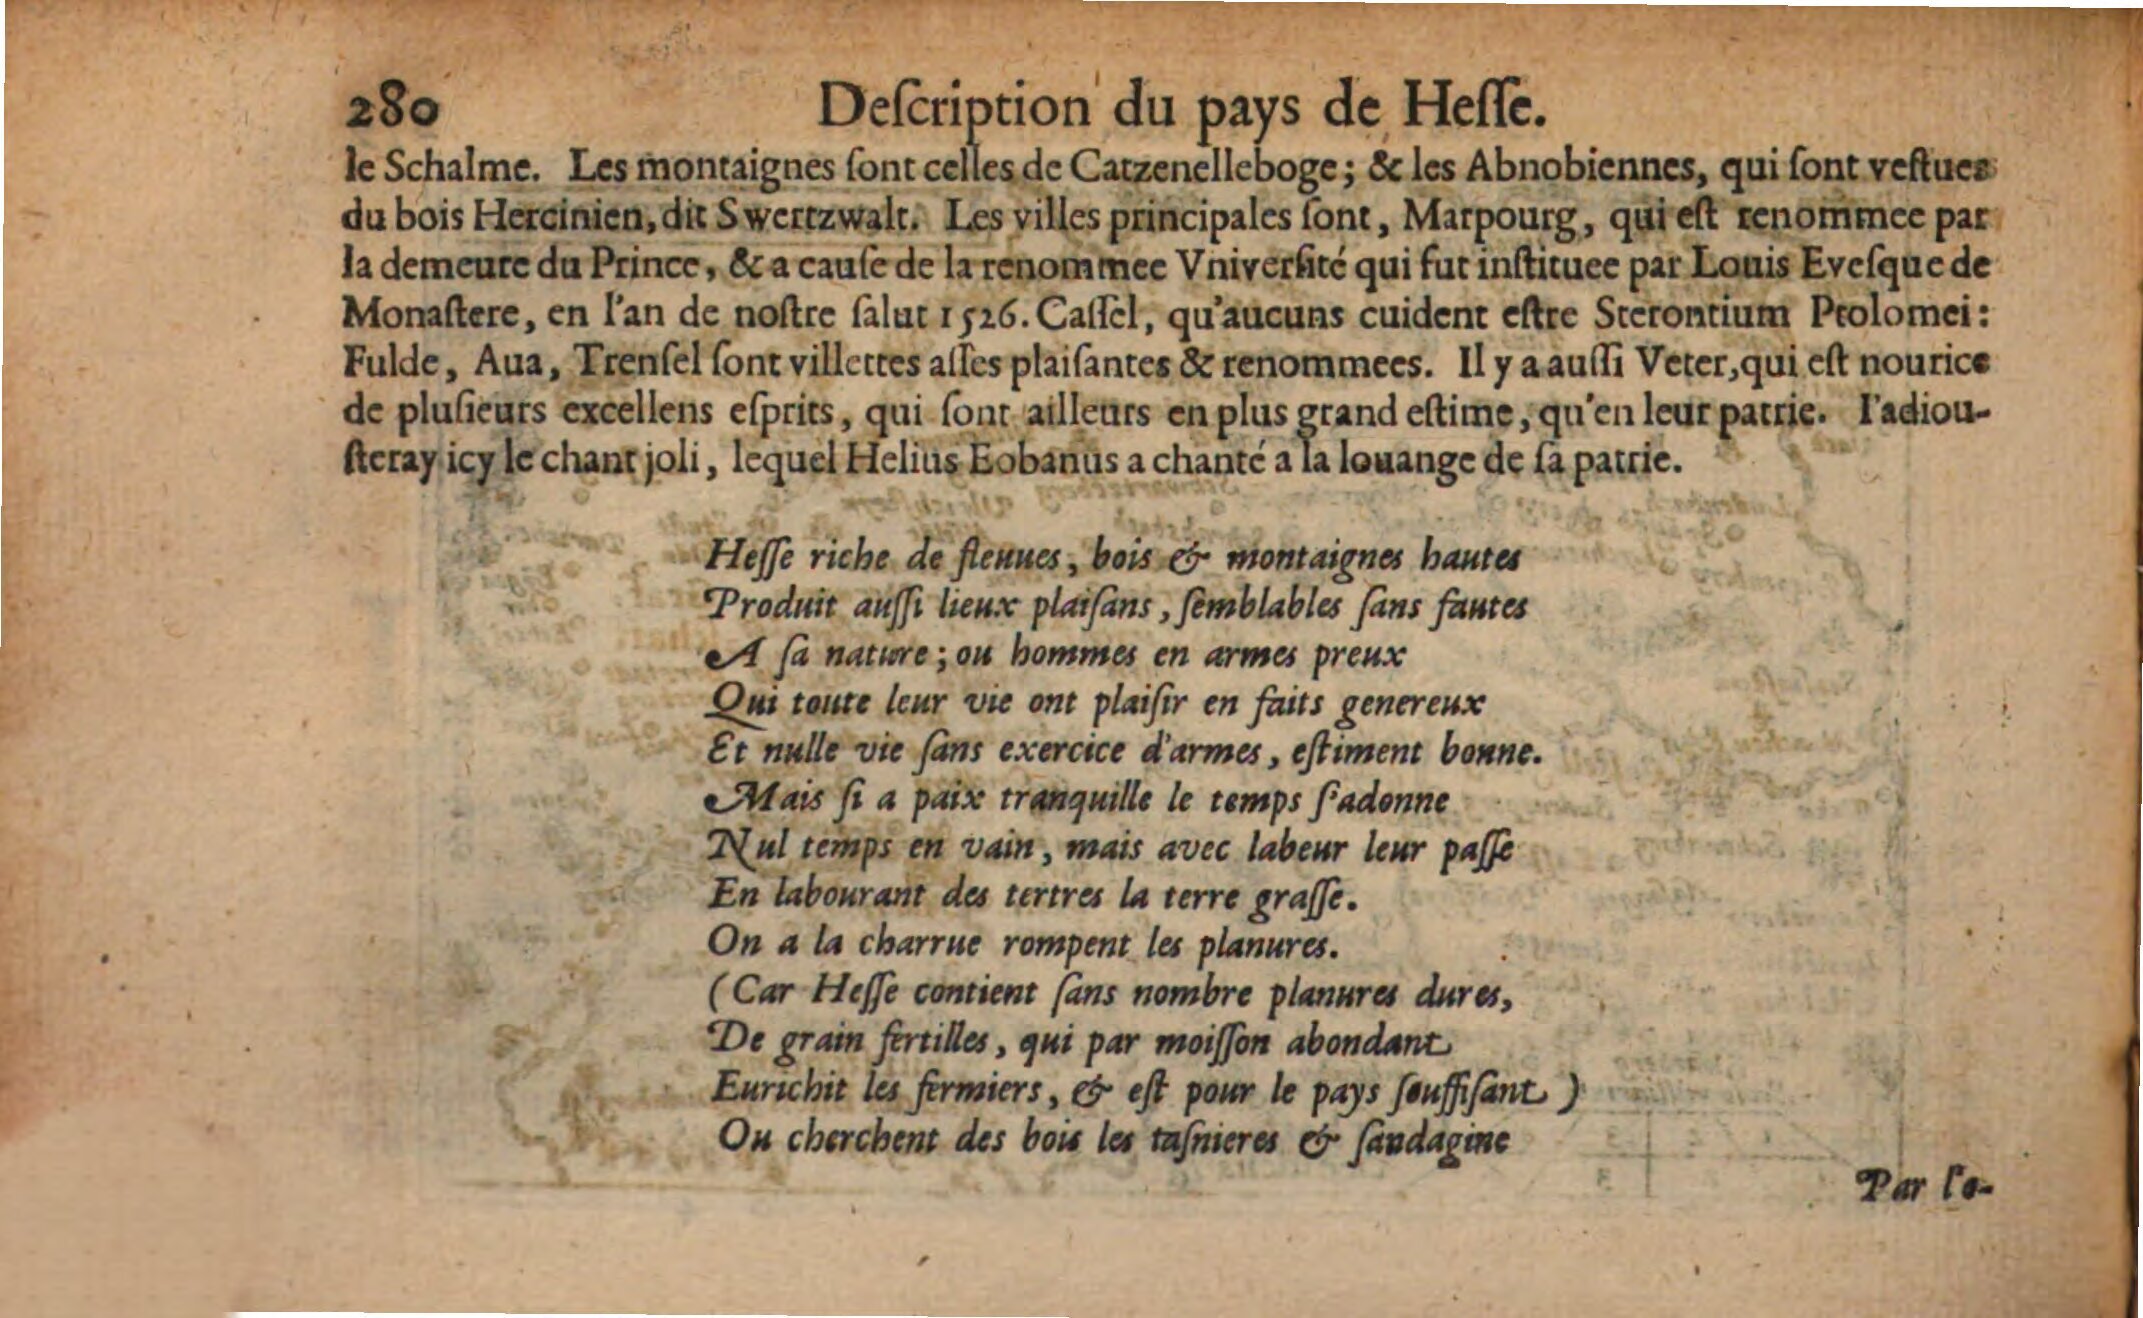 280 Deſcription du pays de Heſſe.
le Schalme. Les montaignes ſont celles de Catzenelleboge; & les Abnobiennes, qui ſont veſtues
du bois Hercinien, dit Swertzwalt. Les villes principales ſont, Marpourg, qui eſt renommee par
la demeure du Prince, & a cauſe de la renommee Vniverſité qui fut inſtituee par Louis Eveſque de
Monaſtere, en l'an de noſtre ſalut 1526. Caſſel, qu'aucuns cuident eſtre Sterontium Ptolomei:
Fulde, Aua, Trenſel ſont villettes aſſes plaiſantes & renommees. Il y a auſſi Veter, qui eſt nourice
de pluſieurs excellens eſprits, qui ſont ailleurs en plus grand eſtime, qu'en leur patrie. I'adiou-
ſteray icy le chant joli, lequel Helius Eobanus a chanté a la louange de ſa patrie.
Heſſe riche de fleuues, bois & montaignes hautes
Produit auſſi lieux plaiſans, ſemblables ſans fautes
A ſa nature; ou hommes en armes preux
Qui toute leur vie ont plaiſir en faits genereux
Et nulle vie ſans exercice d'armes, eſtiment bonne.
Mais ſi a paix tranquille le temps ſ'adonne
Nul temps en vain, mais avec labeur leur paſſe
En labourant des tertres la terre graſſe.
On a la charrue rompent les planures.
(Car Heſſe contient ſans nombre planures dures,
De grain fertilles, qui par moiſſon abondant
Eurichit les fermiers, & eſt pour le pays ſouffiſant)
Ou cherchent des bois les taſnieres & ſaudagine
Par l'o-